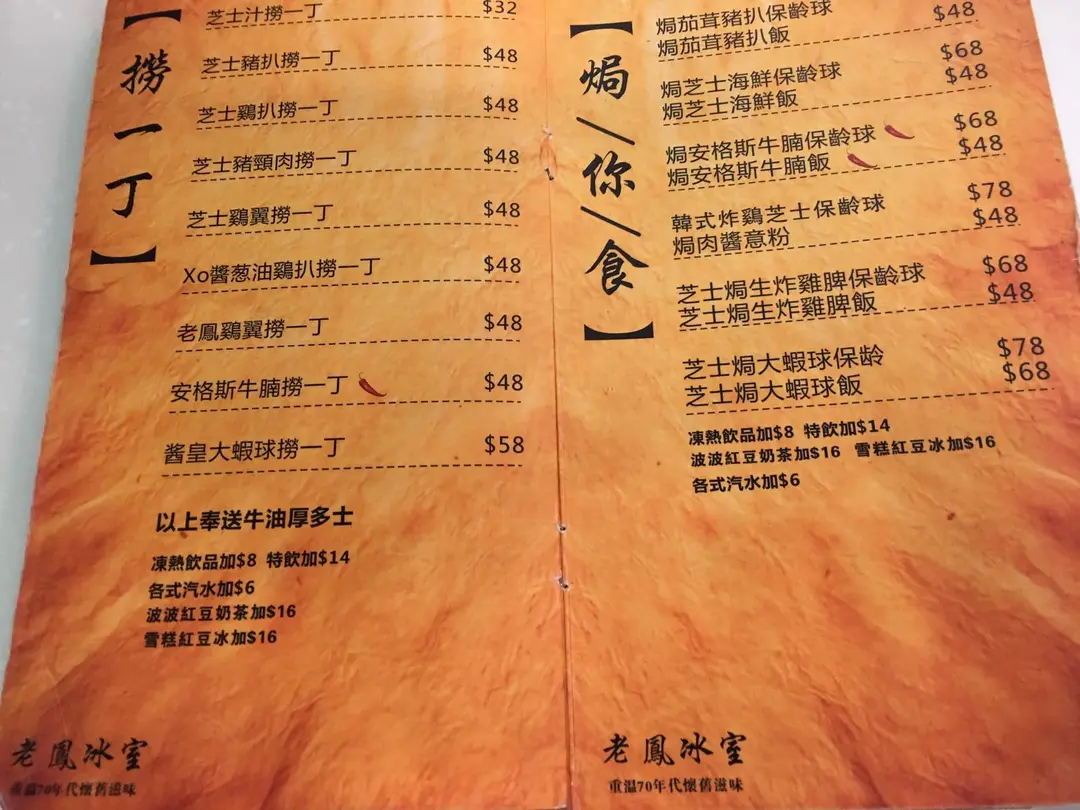 【撈一丁】
芝士汁撈一丁 $32
芝士豬扒撈一丁 $48
芝士鷄扒撈一丁 $48
芝士豬頸肉撈一丁 $48
芝士鷄翼撈一丁 $48
Xo醬葱油鷄扒撈一丁 $48
老鳳鷄翼撈一丁 $48
安格斯牛腩撈一丁 $48
酱皇大蝦球撈一丁 $58
以上奉送牛油厚多士
凍熱飲品加$8 特飲加$14
各式汽水加$6
波波紅豆奶茶加$16
雪糕紅豆冰加$16
老鳳冰室
重温70年代懷舊滋味
【焗/你/食】
焗茄茸豬扒保齡球
焗茄茸豬扒飯 $48
焗芝士海鮮保齡球 $68
焗芝士海鮮飯 $48
焗安格斯牛腩保齡球 $68
焗安格斯牛腩飯 $48
韓式炸鷄芝士保齡球 $78
焗肉醬意粉 $48
芝士焗生炸雞脾保齡球 $68
芝士焗生炸雞脾飯 $48
芝士焗大蝦球保龄 $78
芝士焗大蝦球飯 $68
凍熱飲品加$8 特飲加$14
波波紅豆奶茶加$16 雪糕紅豆冰加$16
各式汽水加$6
老鳳冰室
重温70年代懷舊滋味